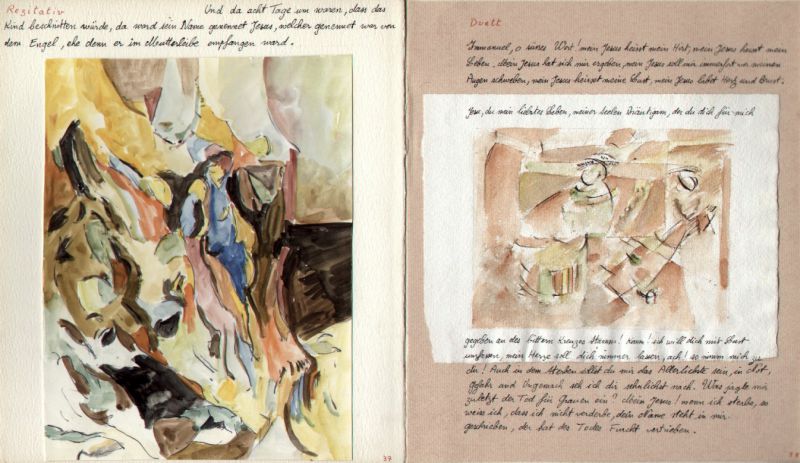 Rezitativ
Und da acht Tage um waren, dass das
Kind beschnitten würde, da ward sein Name genennet Jesus, welcher genennet war von
dem Engel, ehe denn er im Mutterleibe empfangen ward.
37
Duett
Immanuel, o süsses Wort! mein Jesus heisst mein Hort, mein Jesus heisst mein
Leben. Mein Jesus hat sich mir ergeben, mein Jesus soll mir immerfort vor meinen
Augen schweben, mein Jesus heisset meine Lust, mein Jesus labet Herz und Brust.
Jesu, du mein liebstes Leben, meiner Seelen Bräutigam, der du dich für mich
gegeben an des bittern Kreuzes Stamm! Komm! ich will dich mit Lust
umfassen, mein Herze soll dich nimmer lassen, ach! so nimm mich zu
dir! Auch in dem Sterben sollst du mir das Allerliebste sein, in Not,
Gefahr und Ungemach seh ich dir sehnlichst nach. Was jagte mir
zuletzt der Tod für Grauen ein? Mein Jesus! wenn ich sterbe, so
weiss ich, dass ich nicht verderbe, dein Name steht in mir
geschrieben, der hat des Todes Furcht vertrieben.